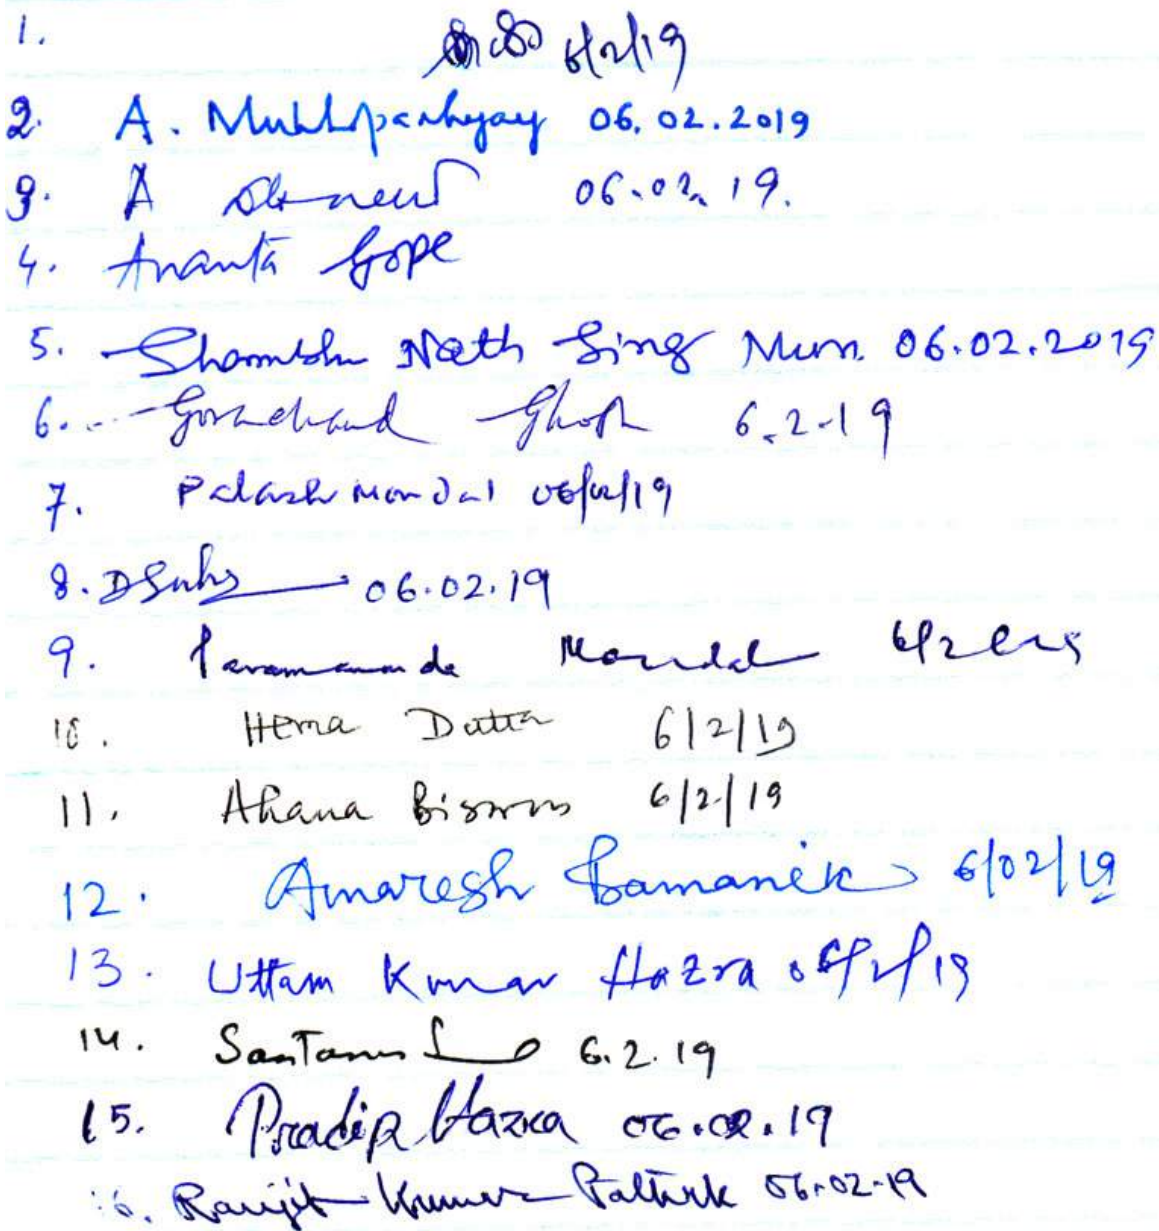 1. 6/2/19
2. A. Mukhopadhyay 06.02.2019
3. A 06.02.19.
4. Ananta Gope
5. Shambhu Nath Sing Mun. 06.02.2019
6. Gorachand Ghosh 6.2.19
7. Palash Mondal 06/02/19
8. 06.02.19
9. Paramananda Mondal
10. Hema Dutta 6/2/19
11. Ahana Biswas 6/2/19
12. Amaresh Pamanik 6/02/19
13. Uttam Kumar Hazra 06/2/19
14. Santanu 6.2.19
15. Pradip Hazra 06.02.19
16. Ranjit Kumar 06.02.19